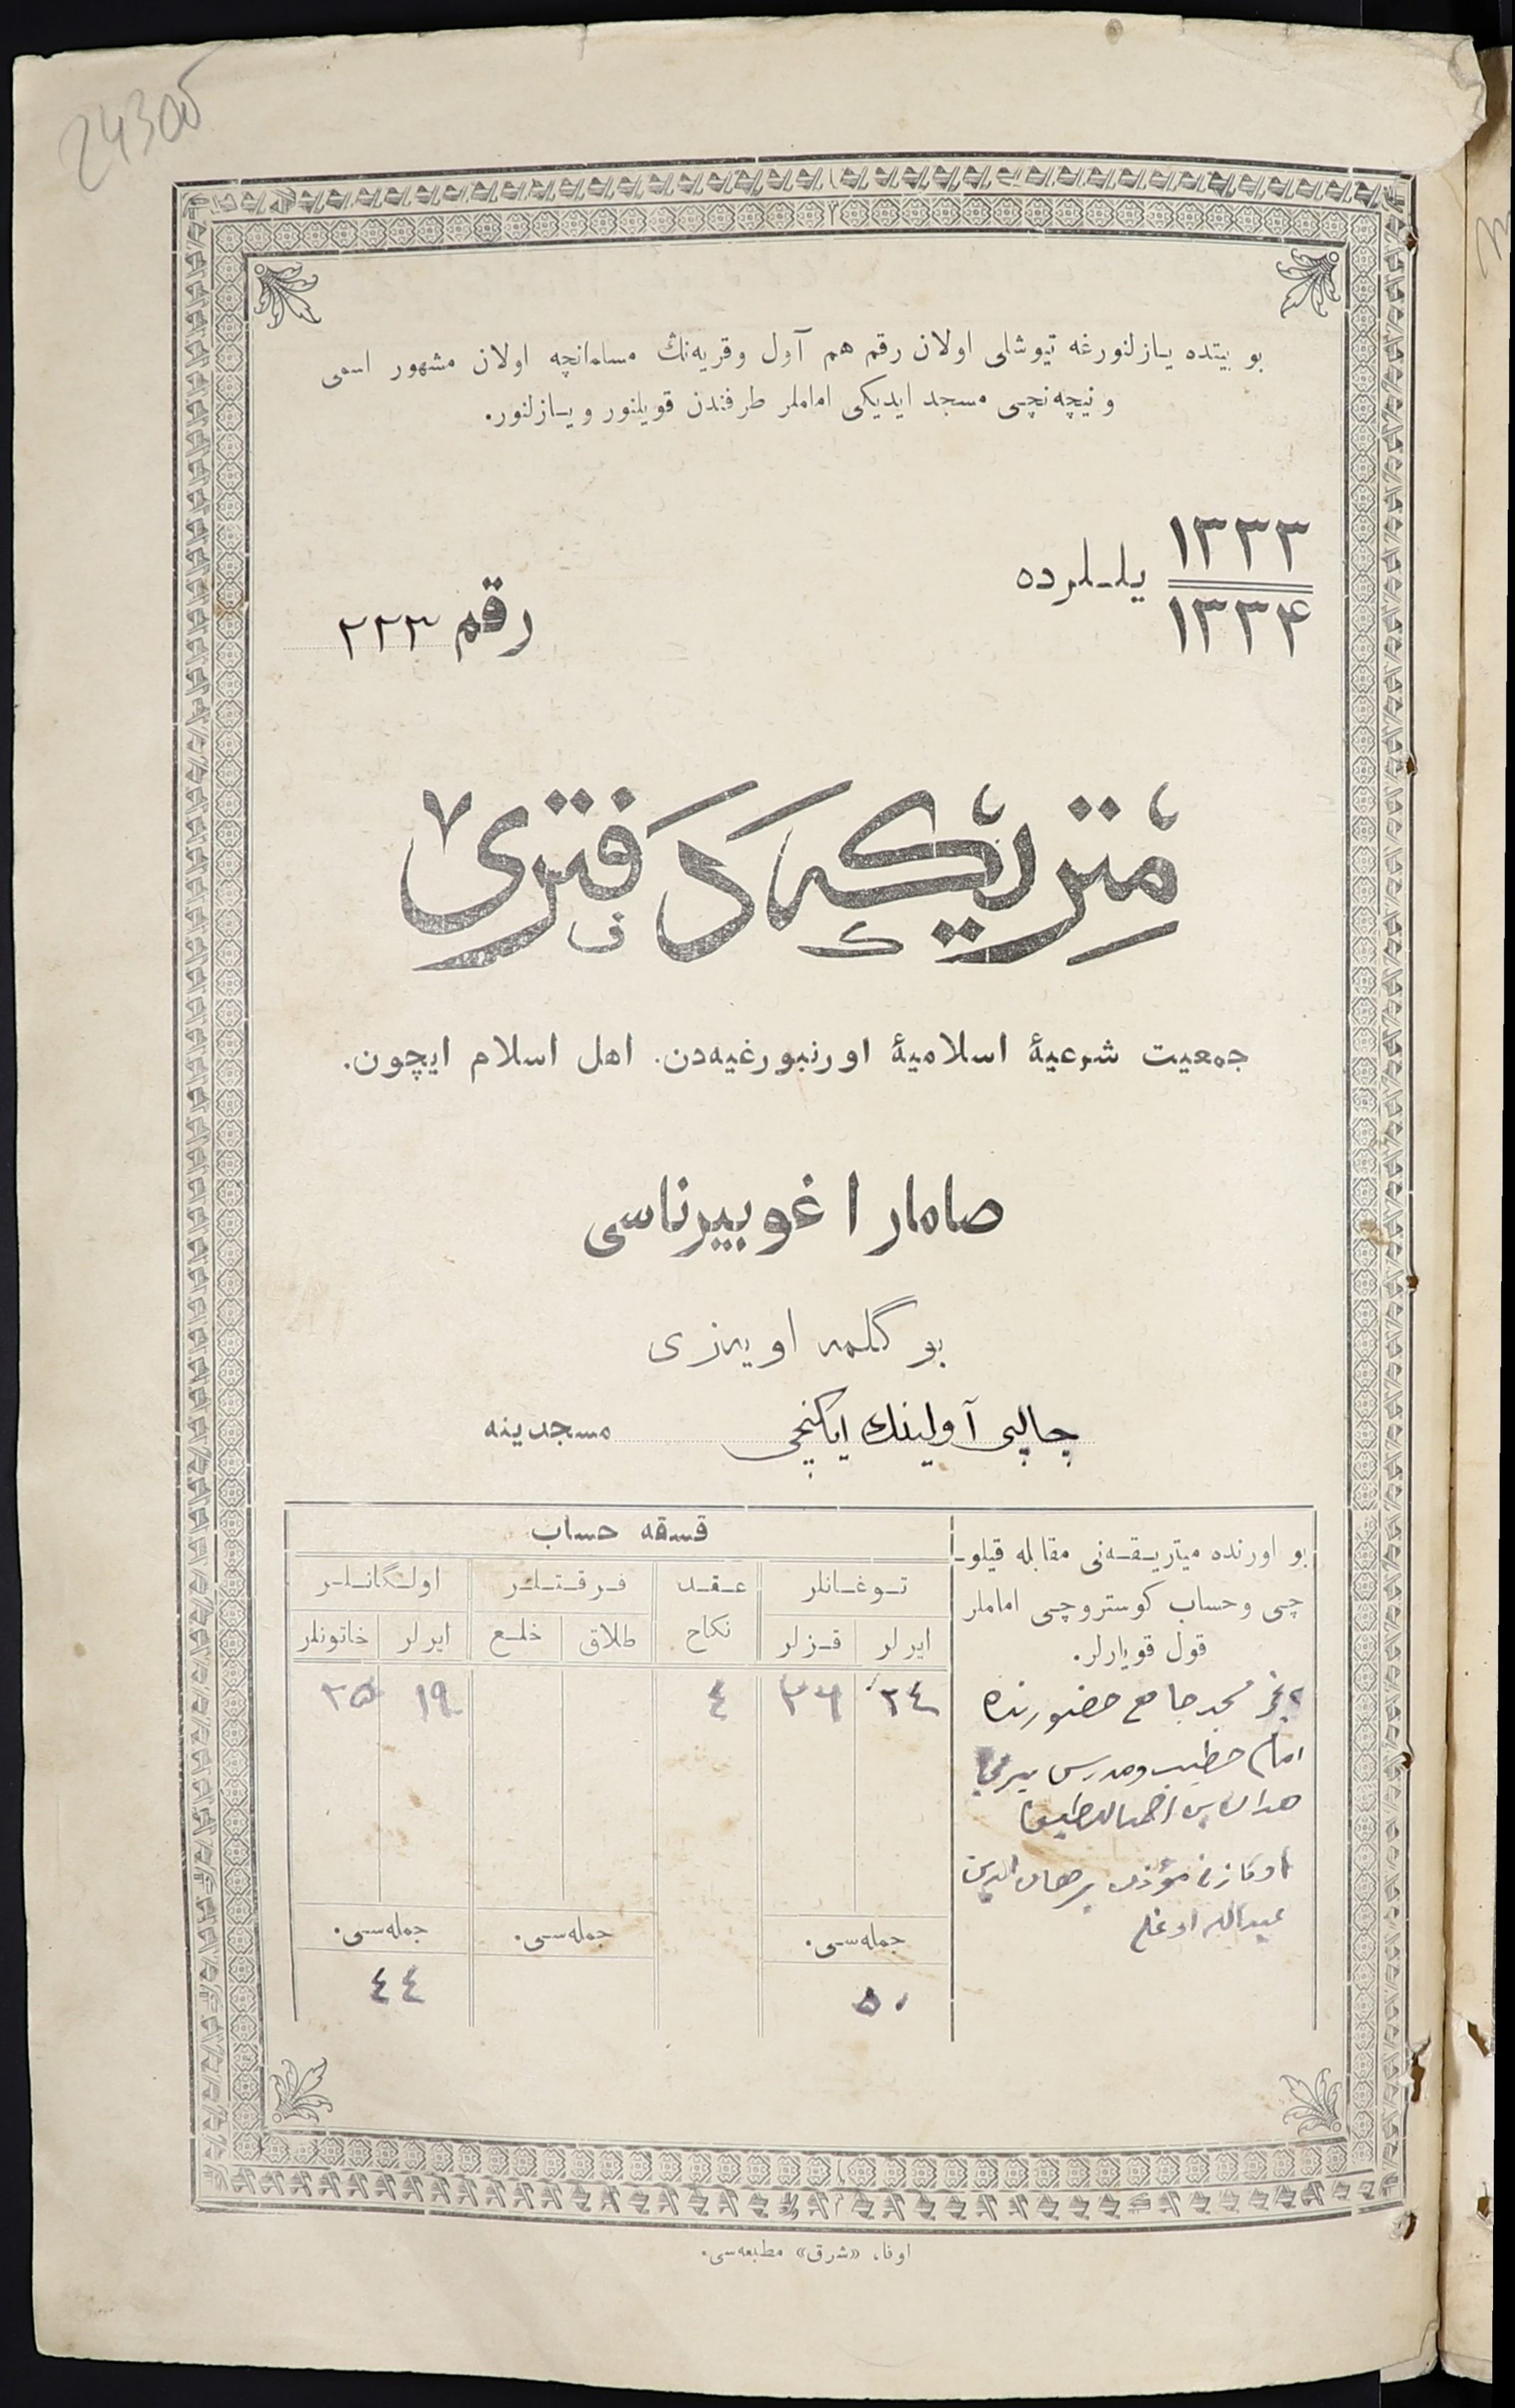 24305
بو بیتده یازلنورغه تیوشلی اولان رقم هم آول وقریه‌نڭ مسلمانچه اولان مشهور اسمی
ونیچه‌نچی مسجد ایدیكی اماملر طرفندن قویلنور ویازلنور.
١٣٣٣
١٣٣۴
یللرده
رقم ٢٢٣
متریكه دفتری
جمعیت شرعیهٔ اسلامیهٔ اورنبورغیه‌دن. اهل اسلام ایچون.
صامارا غوبیرناسی
بوگلمه اویه‌زی
چالپی آولینڭ ایكنچی مسجدینه
بو اورنده میتریقه‌نی مقابله قیلو-
چی وحساب كوستروچی اماملر
قول قویارلر.
قسقه حساب
توغانلر
عقد
نكاح
فرقتلر
اولگانلر
ایرلر
قزلر
طلاق
خلع
ایرلر
خاتونلر
٢٤
٢٦
٤
١٩
٢٥
٢ نچی مسجد جامع حضورنده
امام خطیب ومدرس
مؤذن برهان الدین
عبدالله اوغلی
جمله‌سی.
جمله‌سی.
جمله‌سی.
٥٠
٤٤
اوفا، «شرق» مطبعه‌سی.